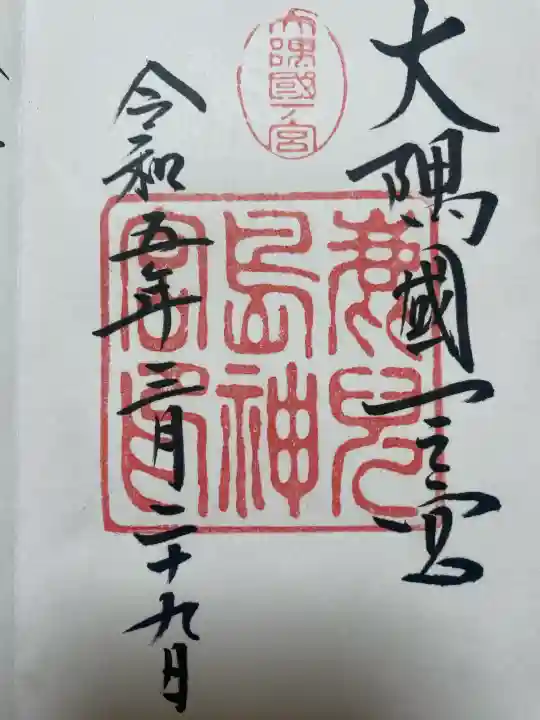 大隅國一之宮
大隅國一ノ宮
鹿児
島神
宮印
令和五年三月二十九日